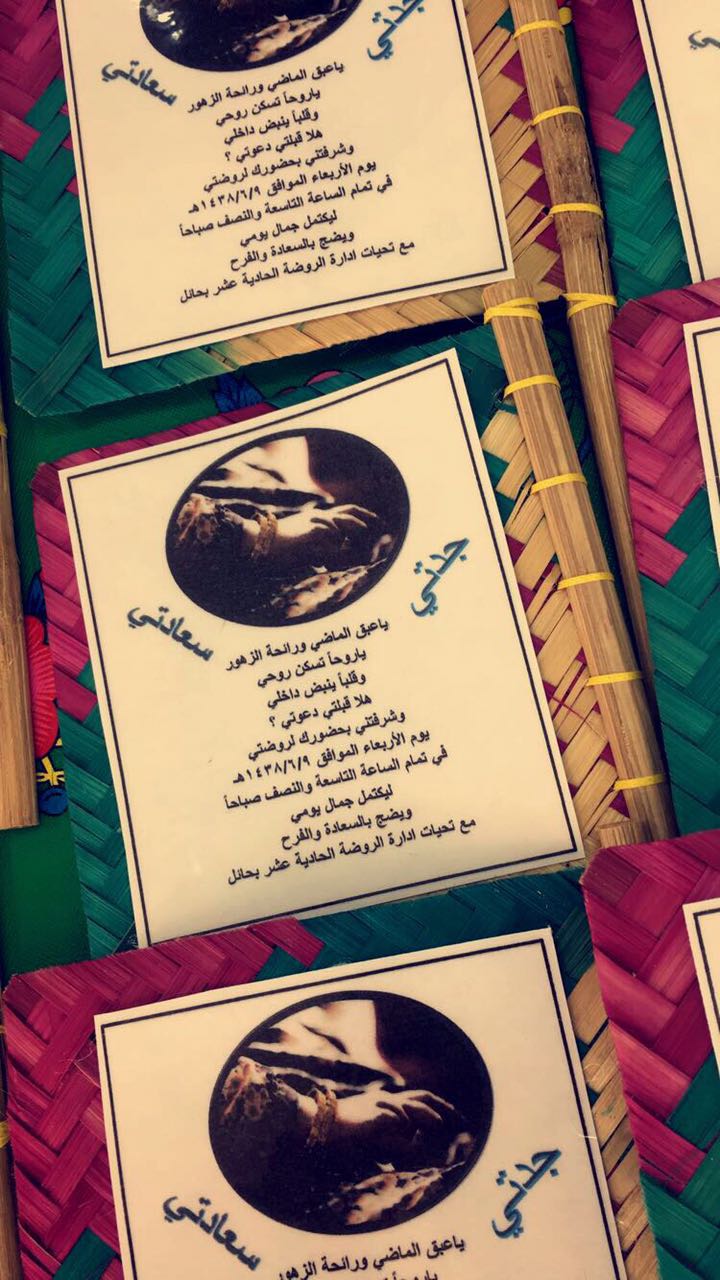 جدتي
سعادتي
ياعبق الماضي ورائحة الزهور
ياروحاً تسكن روحي
وقلباً ينبض داخلي
هلا قبلتي دعوتي ؟
وشرفتلني بحضورك لروضتي
يوم الأربعاء الموافق ١٤٣٨/٦/٩هـ
في تمام الساعة التاسعة والنصف صباحاً
ليكتمل جمال يومي
ويضج بالسعادة والفرح
مع تحيات ادارة الروضة الحادية عشر بحائل
جدتي
سعادتي
ياعبق الماضي ورائحة الزهور
ياروحاً تسكن روحي
وقلباً ينبض داخلي
هلا قبلتي دعوتي ؟
وشرفتلني بحضورك لروضتي
يوم الأربعاء الموافق ١٤٣٨/٦/٩هـ
في تمام الساعة التاسعة والنصف صباحاً
ليكتمل جمال يومي
ويضج بالسعادة والفرح
مع تحيات ادارة الروضة الحادية عشر بحائل
جدتي
سعادتي
ياعبق الماضي ورائحة الزهور